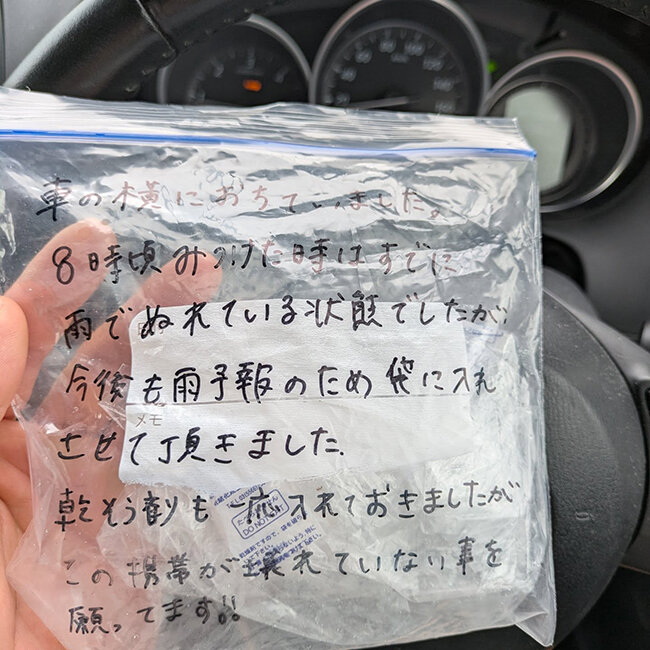 車の横におちていました。
8時頃みつけた時はすでに
雨でぬれている状態でしたが、
今後も雨予報のため袋に入れ
メモ
させて頂きました.
乾そう剤も一応入れておきましたが
DO NOT EAT
この携帯が壊れていない事を
願ってます!!